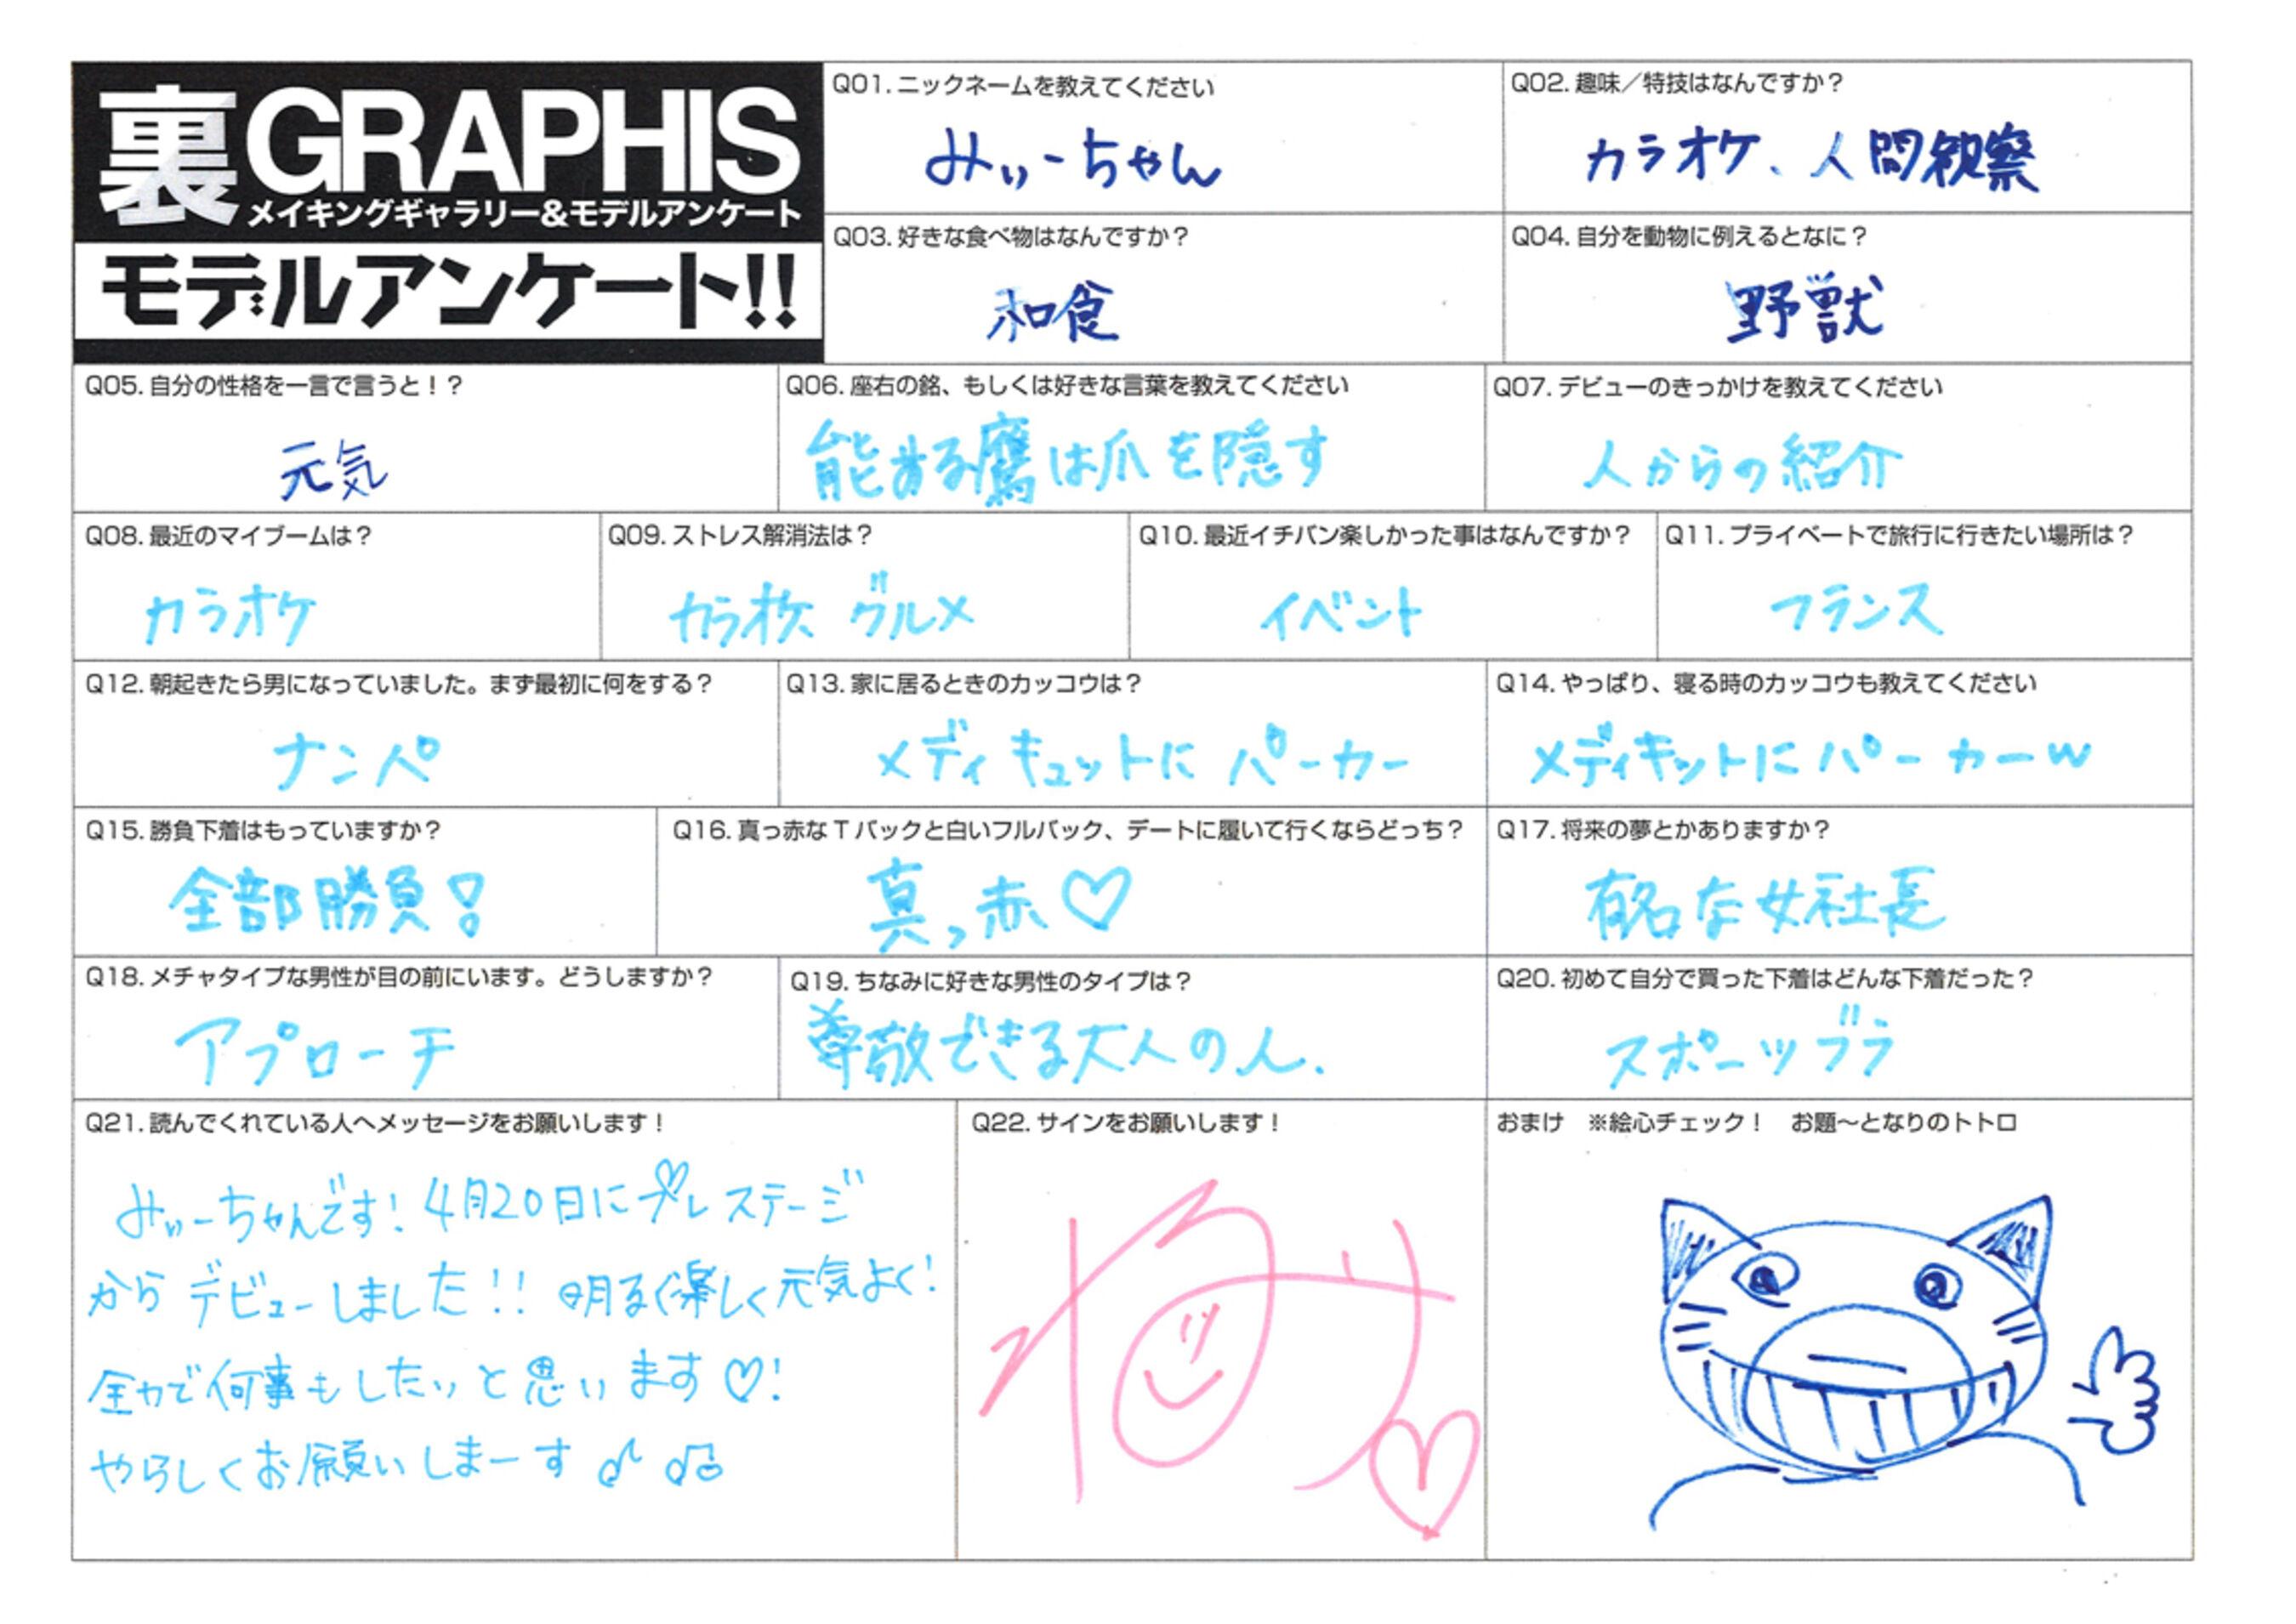 裏GRAPHIS
メイキングギャラリー&モデルアンケート
モデルアンケート!!
Q01. ニックネームを教えてください
みぃーちゃん
Q02. 趣味／特技はなんですか？
カラオケ、人間観察
Q03. 好きな食べ物はなんですか？
和食
Q04. 自分を動物に例えるとなに？
野獣
Q05. 自分の性格を一言で言うと！？
元気
Q06. 座右の銘、もしくは好きな言葉を教えてください
能ある鷹は爪を隠す
Q07. デビューのきっかけを教えてください
人からの紹介
Q08. 最近のマイブームは？
カラオケ
Q09. ストレス解消法は？
カラオケ、グルメ
Q10. 最近イチバン楽しかった事はなんですか？
イベント
Q11. プライベートで旅行に行きたい場所は？
フランス
Q12. 朝起きたら男になっていました。まず最初に何をする？
ナンパ
Q13. 家に居るときのカッコウは？
メディキュットにパーカー
Q14. やっぱり、寝る時のカッコウも教えてください
メディキットにパーカーw
Q15. 勝負下着はもっていますか？
全部勝負!
Q16. 真っ赤なTバックと白いフルバック、デートに履いて行くならどっち？
真っ赤♡
Q17. 将来の夢とかありますか？
有名な女社長
Q18. メチャタイプな男性が目の前にいます。どうしますか？
アプローチ
Q19. ちなみに好きな男性のタイプは？
尊敬できる大人の人.
Q20. 初めて自分で買った下着はどんな下着だった？
スポーツブラ
Q21. 読んでくれている人へメッセージをお願いします！
みぃーちゃんです! 4月20日にプレステージ
からデビューしました!! 明るく楽しく元気よく!
全力で何事もしたいと思います♡!
やらしくお願いしまーす♪ ♫
Q22. サインをお願いします！
おまけ ※絵心チェック！ お題〜となりのトトロ